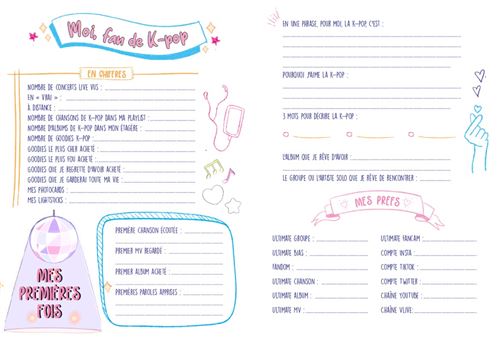 Moi, fan de K-pop
EN CHIFFRES
NOMBRE DE CONCERTS LIVE VUS :
EN « VRAI » :
À DISTANCE :
NOMBRE DE CHANSONS DE K-POP DANS MA PLAYLIST :
NOMBRE D'ALBUMS DE K-POP DANS MON ÉTAGÈRE :
NOMBRE DE GOODIES K-POP :
GOODIES LE PLUS CHER ACHETÉ :
GOODIES LE PLUS FOU ACHETÉ :
GOODIES QUE JE REGRETTE D'AVOIR ACHETÉ :
GOODIES QUE JE GARDERAI TOUTE MA VIE :
MES PHOTOCARDS :
MES LIGHTSTICKS :
MES
PREMIÈRES
FOIS
PREMIÈRE CHANSON ÉCOUTÉE :
PREMIER MV REGARDÉ :
PREMIER ALBUM ACHETÉ :
PREMIÈRES PAROLES APPRISES :
EN UNE PHRASE, POUR MOI, LA K-POP C'EST :
POURQUOI J'AIME LA K-POP :
3 MOTS POUR DÉCRIRE LA K-POP :
L'ALBUM QUE JE RÊVE D'AVOIR :
LE GROUPE OU L'ARTISTE SOLO QUE JE RÊVE DE RENCONTRER :
MES PREFS
ULTIMATE GROUPE :
ULTIMATE BIAS :
FANDOM :
ULTIMATE CHANSON :
ULTIMATE ALBUM :
ULTIMATE MV :
ULTIMATE FANCAM :
COMPTE INSTA :
COMPTE TIKTOK :
COMPTE TWITTER :
CHAÎNE YOUTUBE :
CHAÎNE VLIVE :